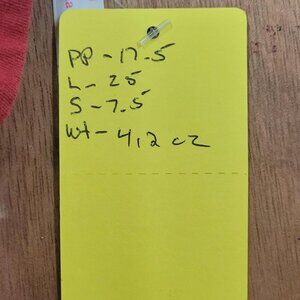 PP - 17.5
L - 25
S - 7.5
Wt - 4.2 oz